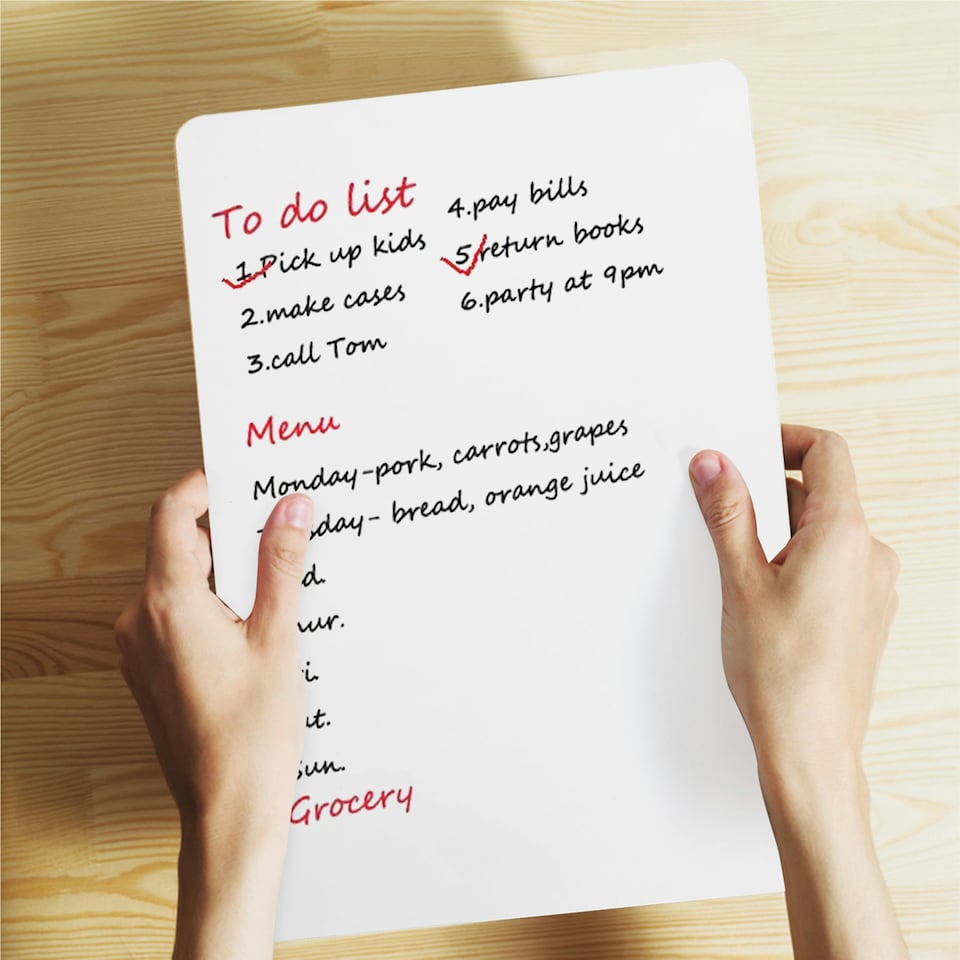 To do list
1.Pick up kids
2.make cases
3.call Tom
4.pay bills
5.return books
6.party at 9pm
Menu
Monday-pork, carrots,grapes
bread, orange juice
sun.
Grocery